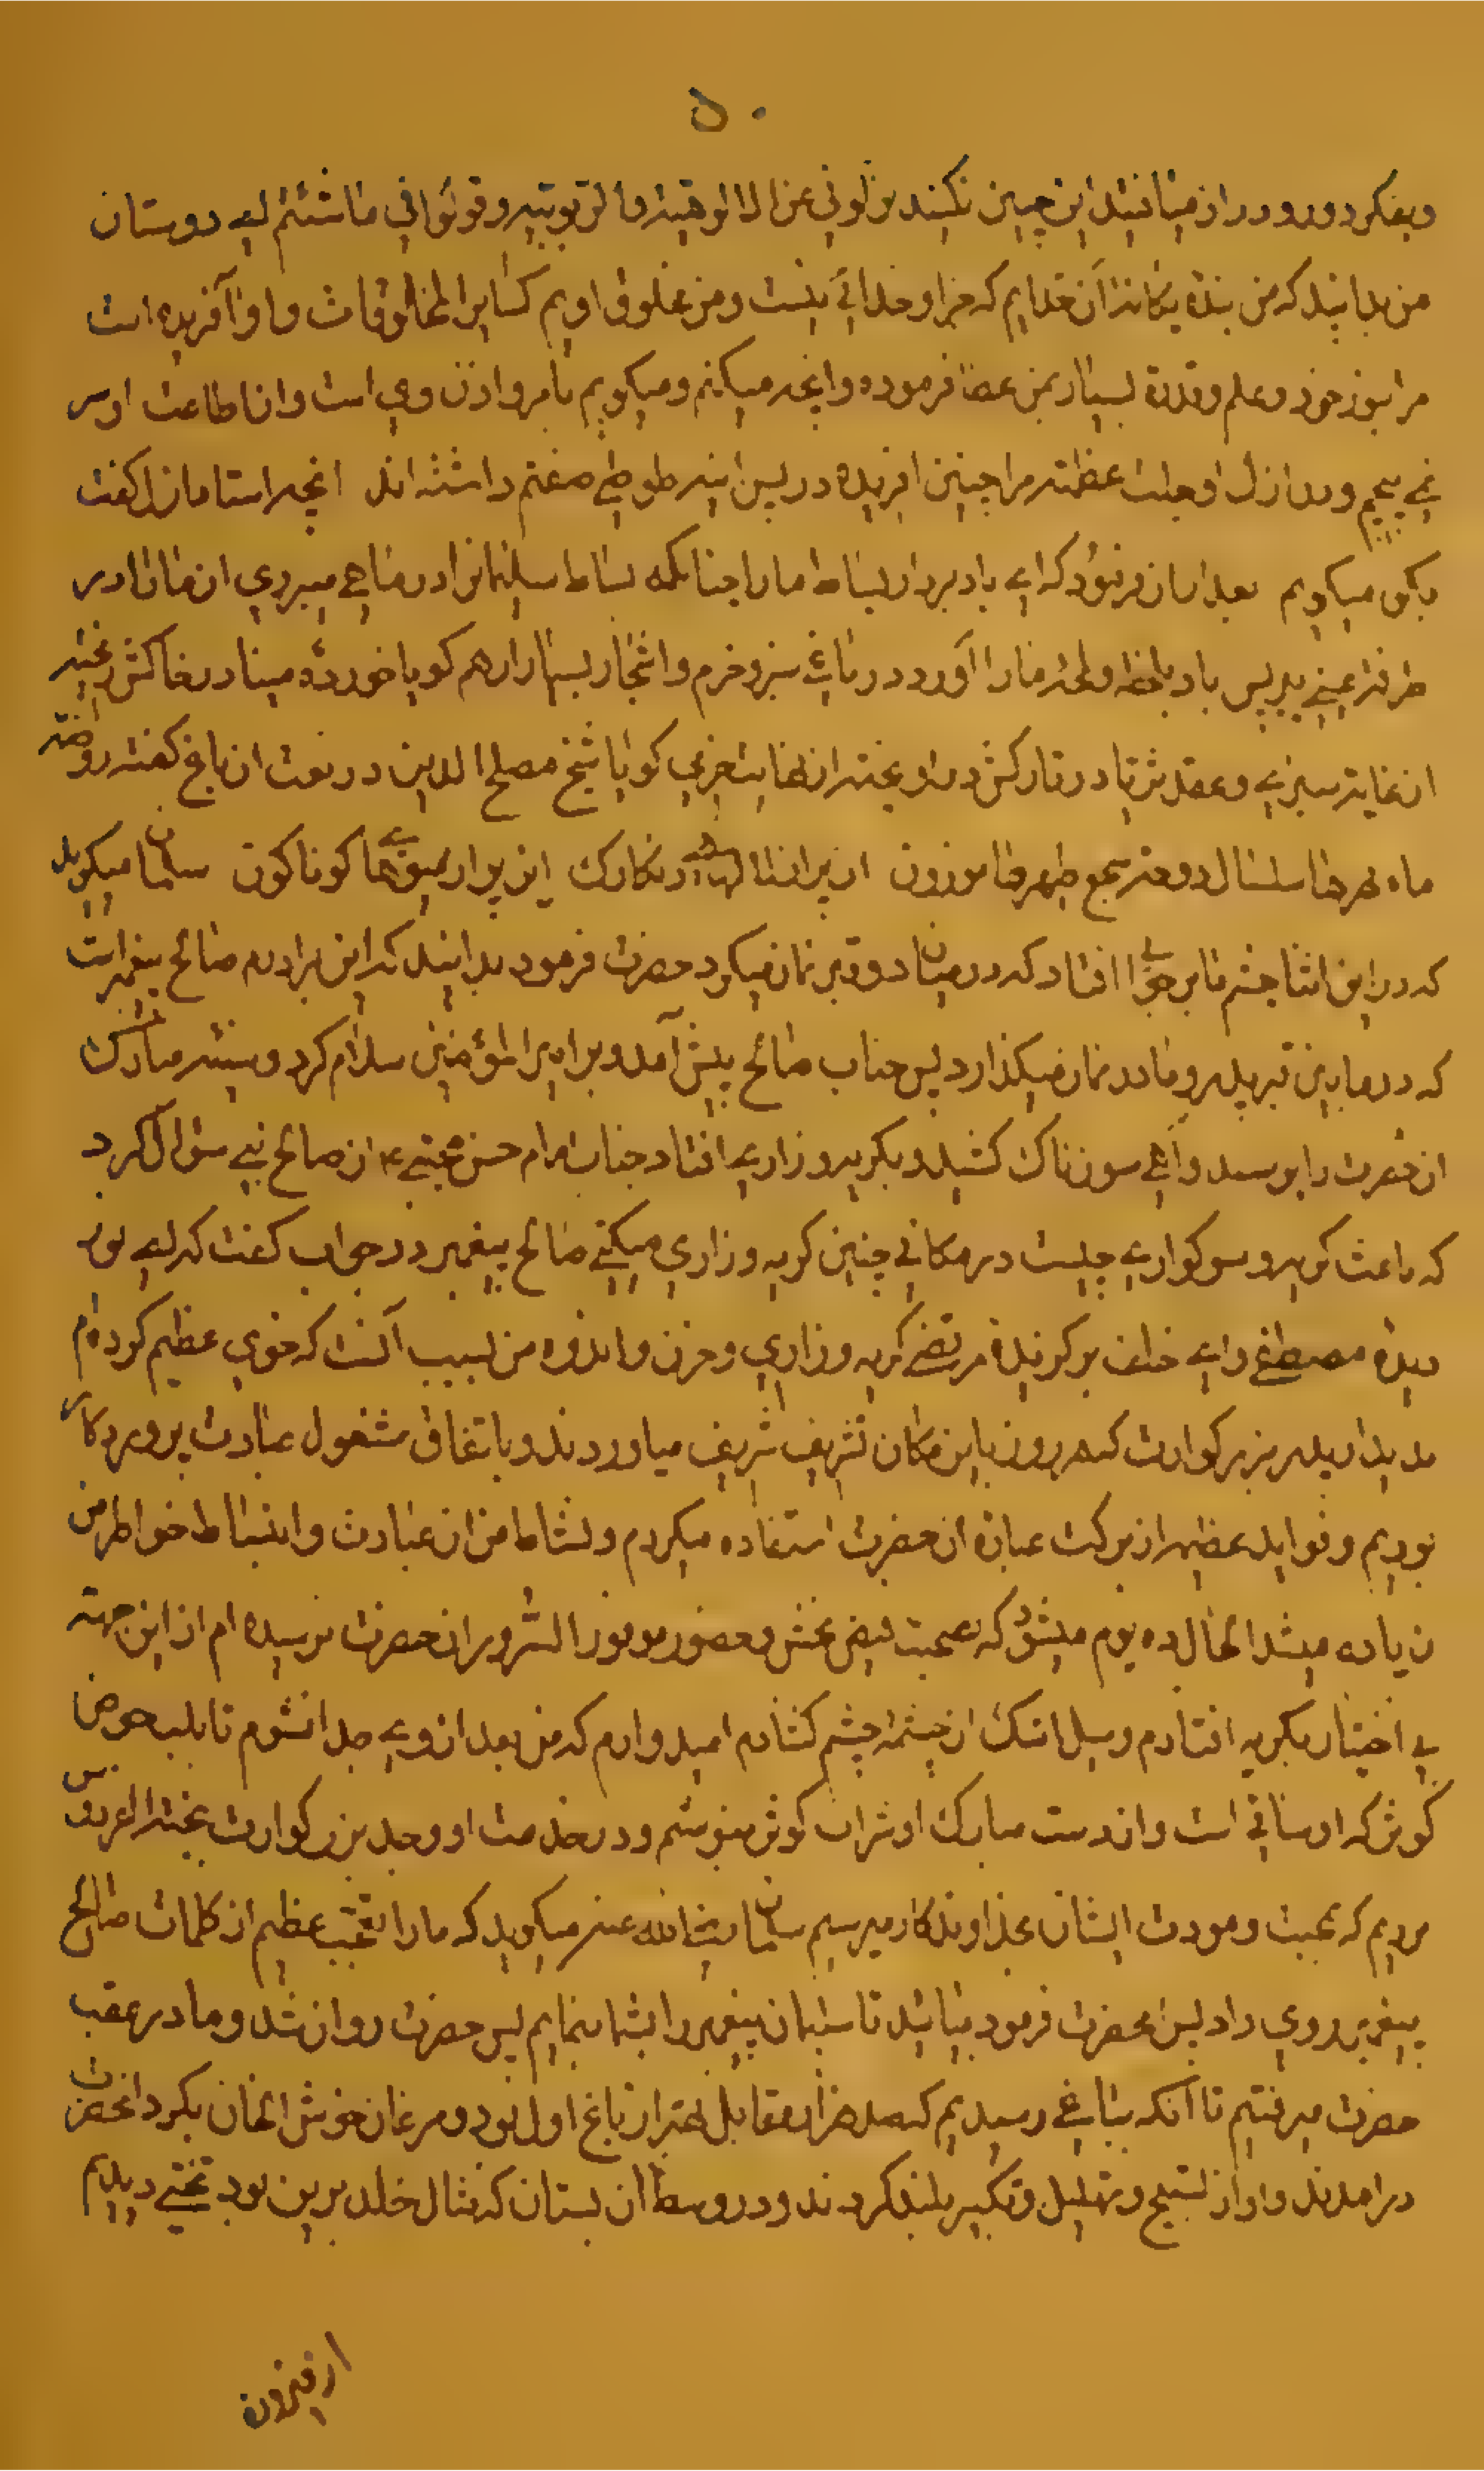 ۵۰
وبفکر دور و دراز میافتید این چنین نکنید نزلونی عن الالوهیته والربوبیه وقولوا فی ماشئتم ای دوستان
من بدانید که من بنده یکانه آن خدایم که جز او خدائی نیست ومن مخلوق اویم کسایر المخلوقات و او آفریده است
مرا بنور خود وعلم وقدرة بسیار بمن عطا فرموده وانچه میکنم ومیکویم بامر واذن وی است واز اطاعت او سر
نمی پیچم ودر ازل او جلت عظمته مرا چنین افریده در پس اینه طوطی صفتم داشته اند انچه استاد ازل کفت
بکو میکویم بعد از ان فرمود که ای باد بردار بساط مارا چنانکه بساط سلیمانرا در ماهی میبردی ان مارا در
طرفة عینی ببر پس باد بلحظه ولمحه مارا آورد در باغی سبز وخرم واشجار بسیار درهم کویا خورده مینا در خاکش ریخته
از غایة سبزی وعقد ثریا در تارکش در اویخته از نهایت خرمی کویا شیخ مصلح الدین در نعت ان باغ کفته روضة
ماء نهرها سلسال دوحة سجع طیرها موزون ان پر از لالهای رنکارنک این پر از میوهای کوناکون سلمان میکوید
که در این اثنا چشم ما بر جوانی افتاد که در میان دو قبر نماز میکرد حضرت فرمود بدانید که این برادرم صالح پیغمبر است
که در مابین قبر پدر ومادر نماز میکذارد پس جناب صالح پیش آمد وبر امیرالمؤمنین سلام کرد وسینه مبارک
انحضرت را بوسید واهی سوزناک کشید وبکریه وزاری افتاد جناب امام حسن مجتبی ع از صالح نبی سؤال کرد
که باعث کریه وسوکواری چیست در مکانی چنین کریه وزاری میکنی صالح پیغمبر در جواب کفت که ای نور
دیدهٔ مصطفی وای خلف برکزیدهٔ مرتضی کریه وزاری وحزن واندوه من بسبب آنست که خوی عظیم کرده ام
بدیدار پدر بزرکوارت که هر روز باین مکان تشریف شریف میاوردند وباتفاق مشغول عبادت پروردکار
بودیم وفواید عظیم از برکت عبادة انحضرت استفاده میکردم ونشاط من از ان عبادت وانبساط خواطر من
زیاده میشد الحال ده یوم میشود که بصحبت فیض بخش وحضور موفور السرور انحضرت نرسیده ام از این جهته
بی اختیار بکریه افتادم وسیل اشک از چشمه چشم کشادم امیدوارم که من بعد از وی جدا نشوم تا بلب حوض
کوثر که او ساقی است واز دست مبارک او شراب کوثر بنوشم ودر خدمت او وجد بزرکوارت بجنة الفردوس
بردیم که بمحبت ومودت ایشان بخداوندکار میرسیم سلمان رضی الله عنه میکوید که مارا تعجب عظیم از کلمات صالح
پیغمبر روی داد پس انحضرت فرمود بیائید تا سلیمان پیغمبر را بشما بنمایم پس حضرت روان شد وما در عقب
حضرت میرفتیم تا آنکه بباغی رسیدیم که صد هزار مقابل بهتر از باغ اول بود ومرغان خوش الحان بکرد انحضرت
درامدند واواز تسبیح وتهلیل وتکبیر بلند کردند ودر وسط ان بستان که مثال خلد برین بود تختی دیدیم
از فیروزه